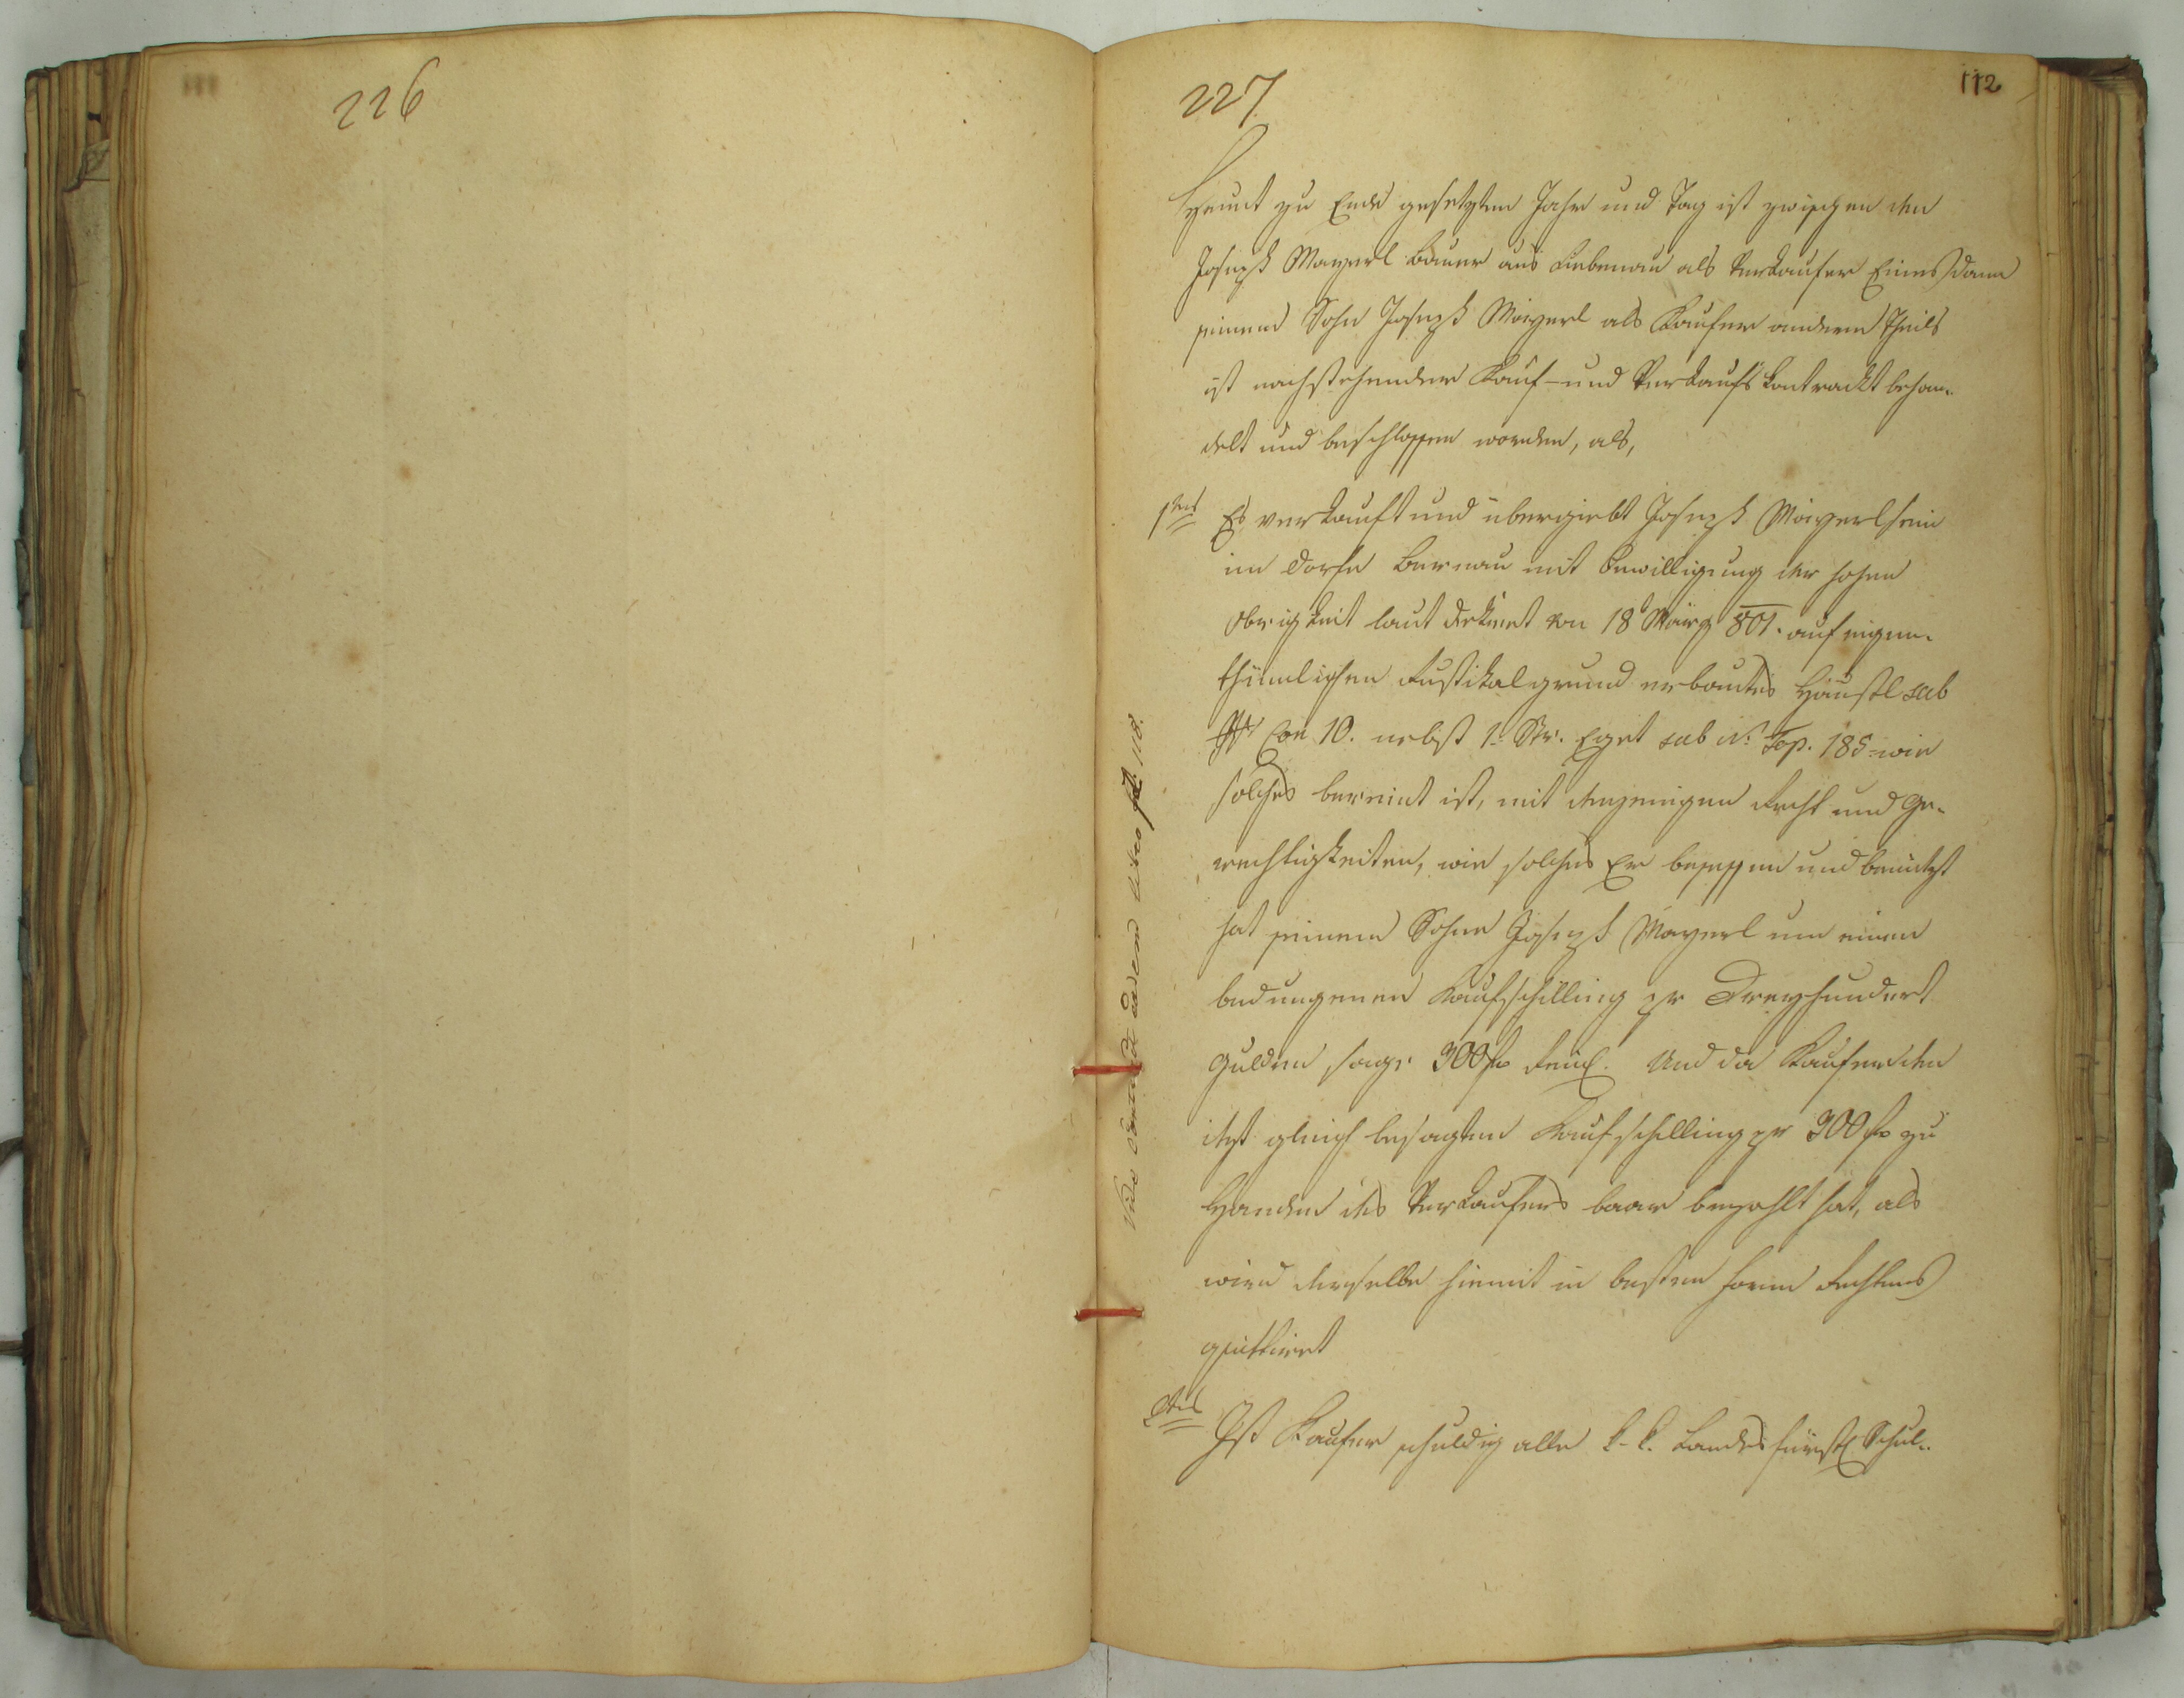 226
227
112
Heunt zu Ende gesetzten Jahr und Tag ist zwischen den
Joseph Mayerl Bauer aus Liebenau als Verkaufer Eines dann
seinem Sohn Joseph Mayerl als Kaufer anderen Theils
ist nachstehender Kauf- und Verkaufs kontrackt behan-
delt und beschlossen worden, als,
1tens Es verkauft und übergiebt Joseph Mayerl sein
im Dorfe Bernau mit Bewilligung der hohen
Obrigkeit laut Dekret von 18t März 801. auf eigen-
thümlichen Rustikalgrund erbautes Häusl sub
No Con 10. nebst 1. Str. Eget sub No Top. 185 wie
solches bereint ist, mit denjenigen Recht und Ge-
rechtigkeiten, wie solches Er besessen und benützt
hat seinem Sohne Joseph Mayerl um einen
bedungenen Kaufschilling pr Dreyhundert
Gulden sage 300 f. Und da Kaufer den
itzt gleich besagten Kaufschilling pr 300 f zu
Handen des Verkaufers baar bezahlt hat, als
wird derselbe hiemit in besten Form Rechtens
quittiert
2tens Ist Kaufer schuldig alle k. k. Landesfürstl Schul-
Vide folio 118.